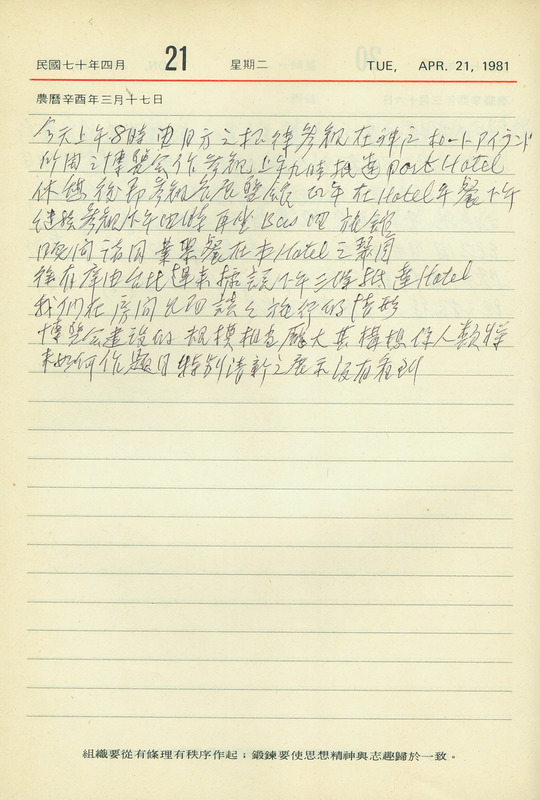 民國七十年四月 21 星期二 TUE, APR. 21, 1981
農曆辛酉年三月十七日
今天上午8時由日方之招待參觀在神戶ポートアイランド
所開之博覽会作參觀上午九時抵達Port Hotel
休息後即參觀各展覽館 中午在Hotel午餐下午
繼續參觀下午四時再坐Bus回旅館
晚間諸同業聚餐在本Hotel之
徐有庠由台北趕來 下午三時抵達Hotel
我們在房間見面談之旅行的情形
博覽会建設的規模相當龐大其構想係人類將
來如何作題目特別清新之展示沒有看到
組織要從有條理有秩序作起；鍛鍊要使思想精神與志趣歸於一致。